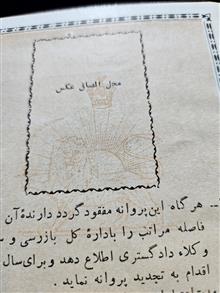 محل الصاق عکس
ــ هرگاه این پروانه مفقود گردد دارندهٔ آن
فاصله مراتب را بادارهٔ کل بازرسی و
وکلاء دادگستری اطلاع دهد و برای سال
اقدام به تجدید پروانه نماید .